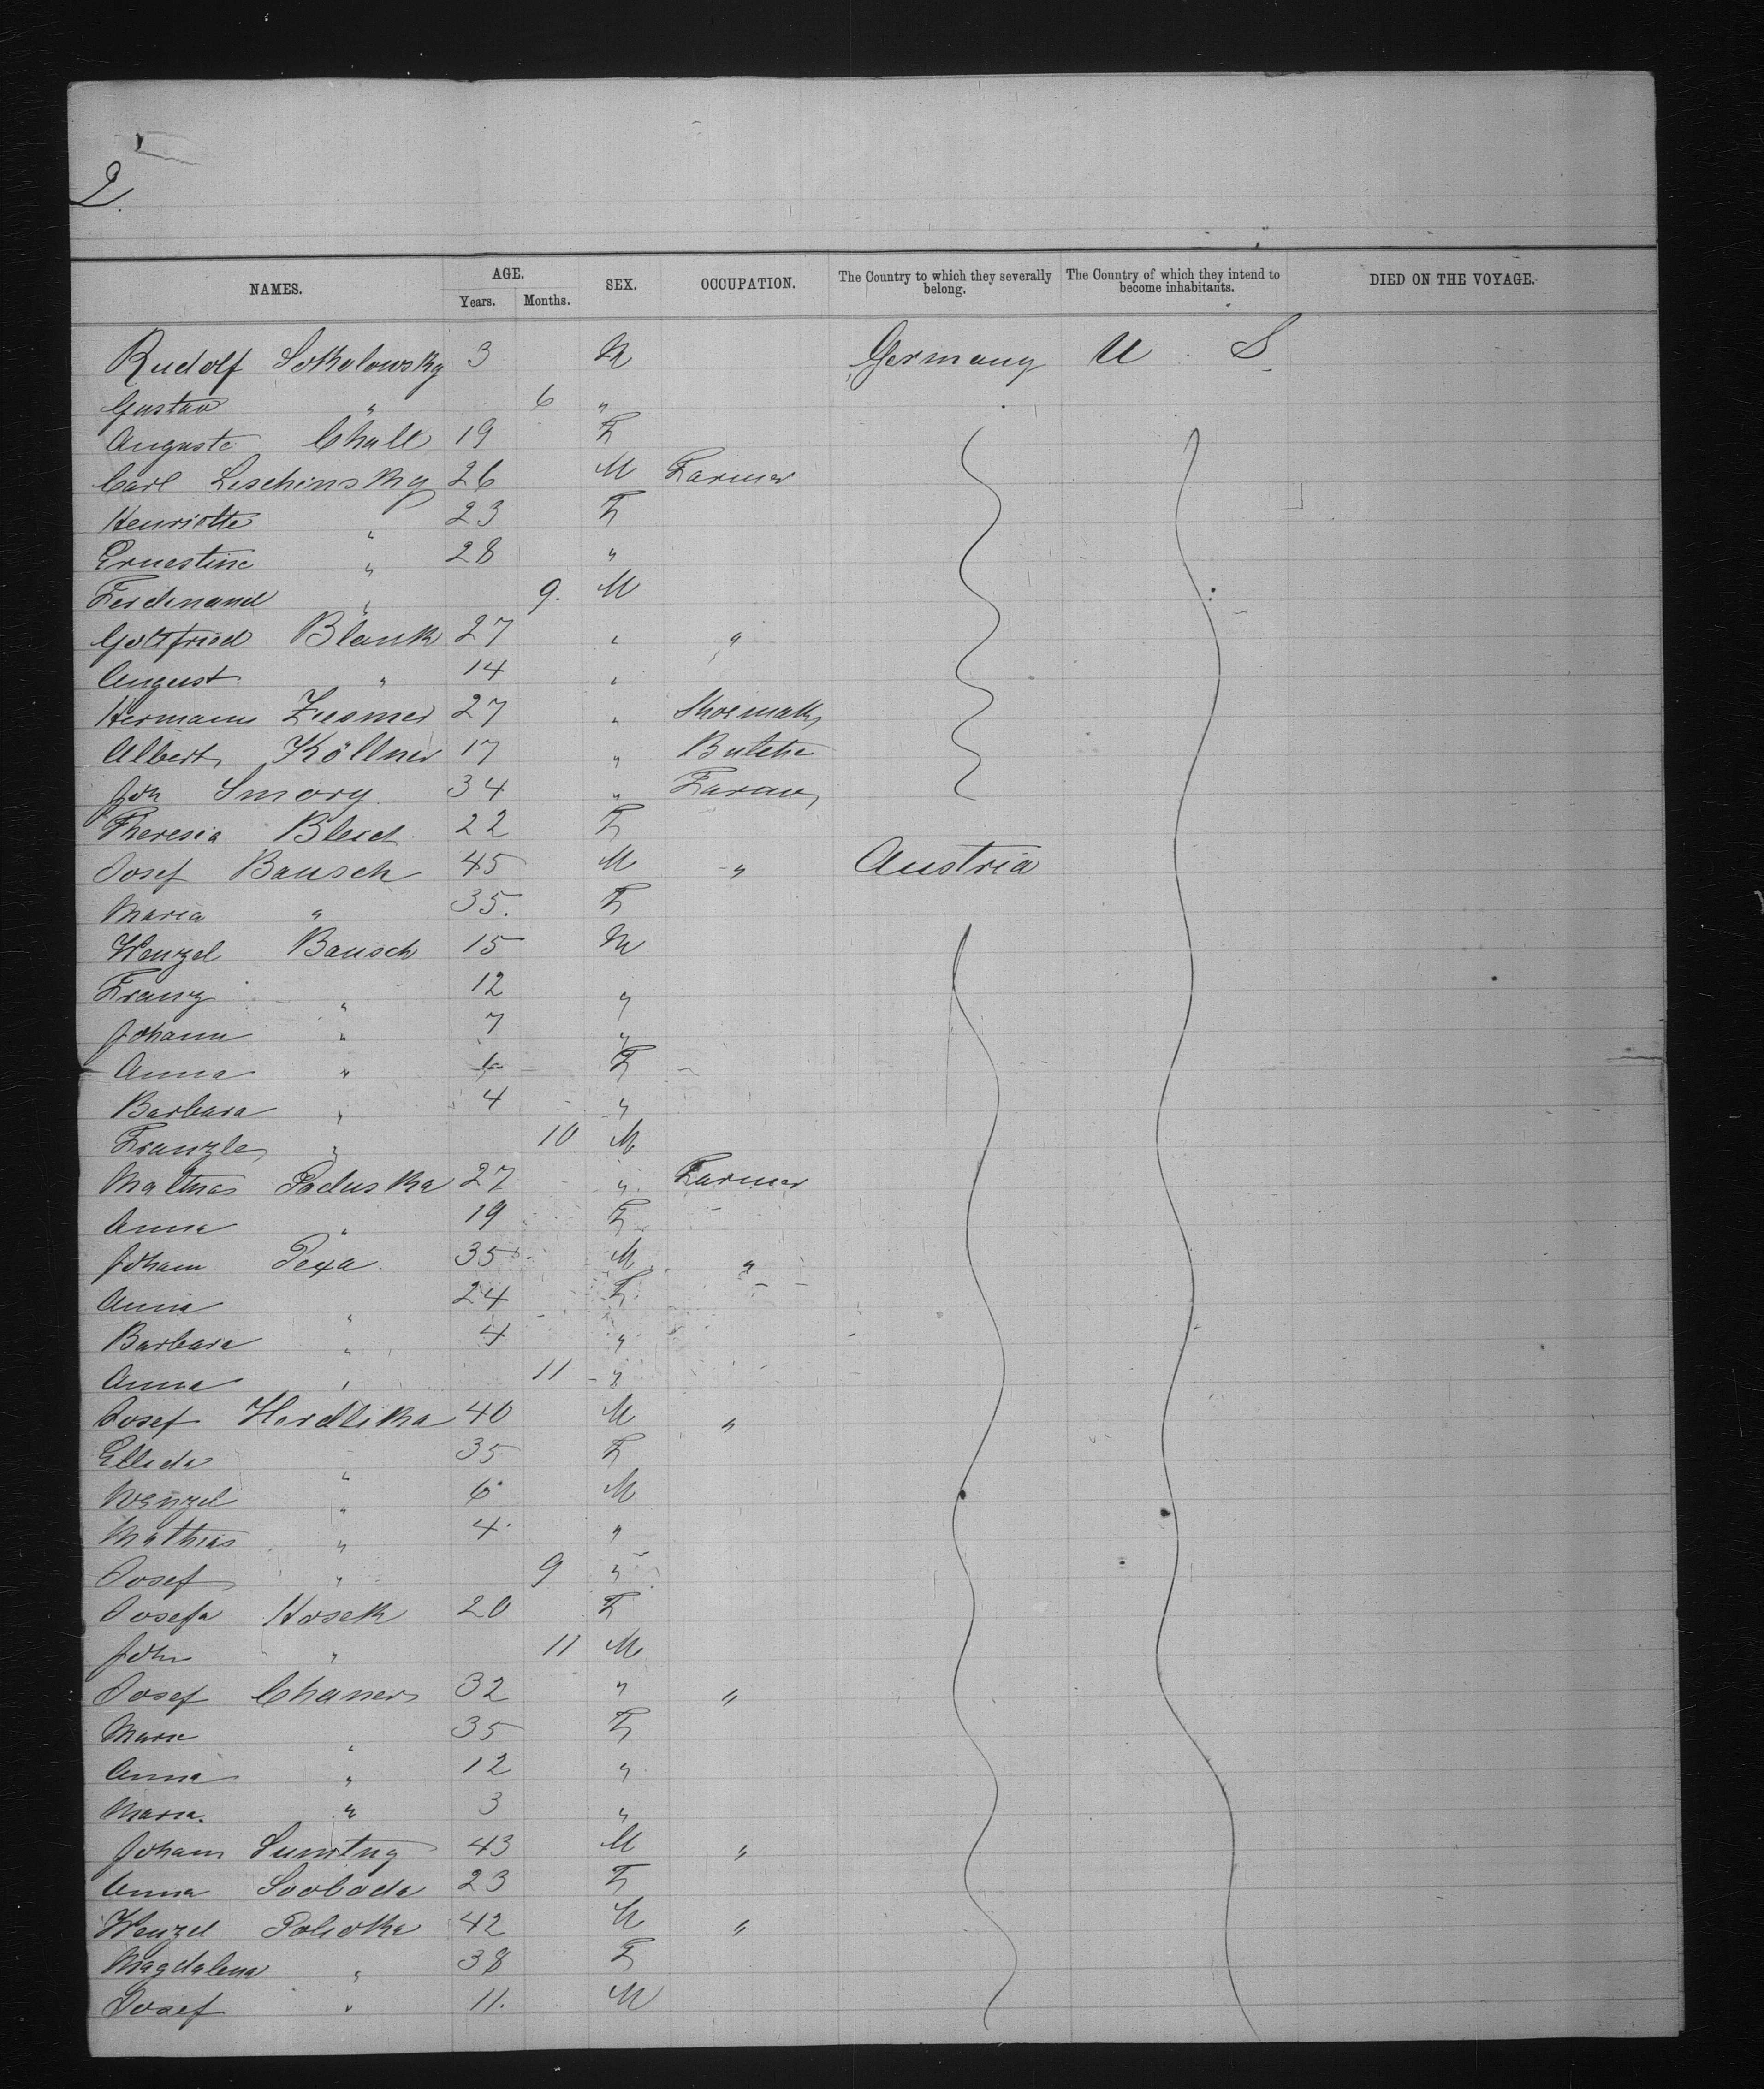 2.
NAMES. AGE. Years. Months. SEX. OCCUPATION. The Country to which they severally belong. The Country of which they intend to become inhabitants. DIED ON THE VOYAGE.
Rudolf Sokolowsky 3 M Germany U S
Gustav " 6 "
Auguste 19 F
Carl Leschinsky 26 M Farmer
Henriette " 23 F
Ernestine " 28 "
Ferdinand " 9. M
Gottfried Blank 27 " "
August " 14 "
Hermann 27 "
Albert Köllner 17 "
Joh Smory 34 "
Theresia 22 F
Josef Bausch 45 M " Austria
Maria " 35. F
Wenzel Bausch 15 M
Franz " 12 "
Johann " 7 "
Anna " F
Barbara " 4 "
10 M
Mathias Paduska 27 " Farmer
Anna " 19 F
Johann Pexa 35 M "
Anna " 24 F
Barbara " 4 "
Anna " 11 "
Josef Herdlika 40 M "
" 35 F
Wenzel " 6 M
Mathias " 4 "
Josef " 9 "
Josefa Hosek 20 F
John " 11 M
Josef 32 " "
Marie " 35 F
Anna " 12 "
Maria. " 3 "
Johann 43 M "
Anna Svoboda 23 F
Wenzel Polivka 42 M "
Magdalena " 38 F
Josef " 11. M